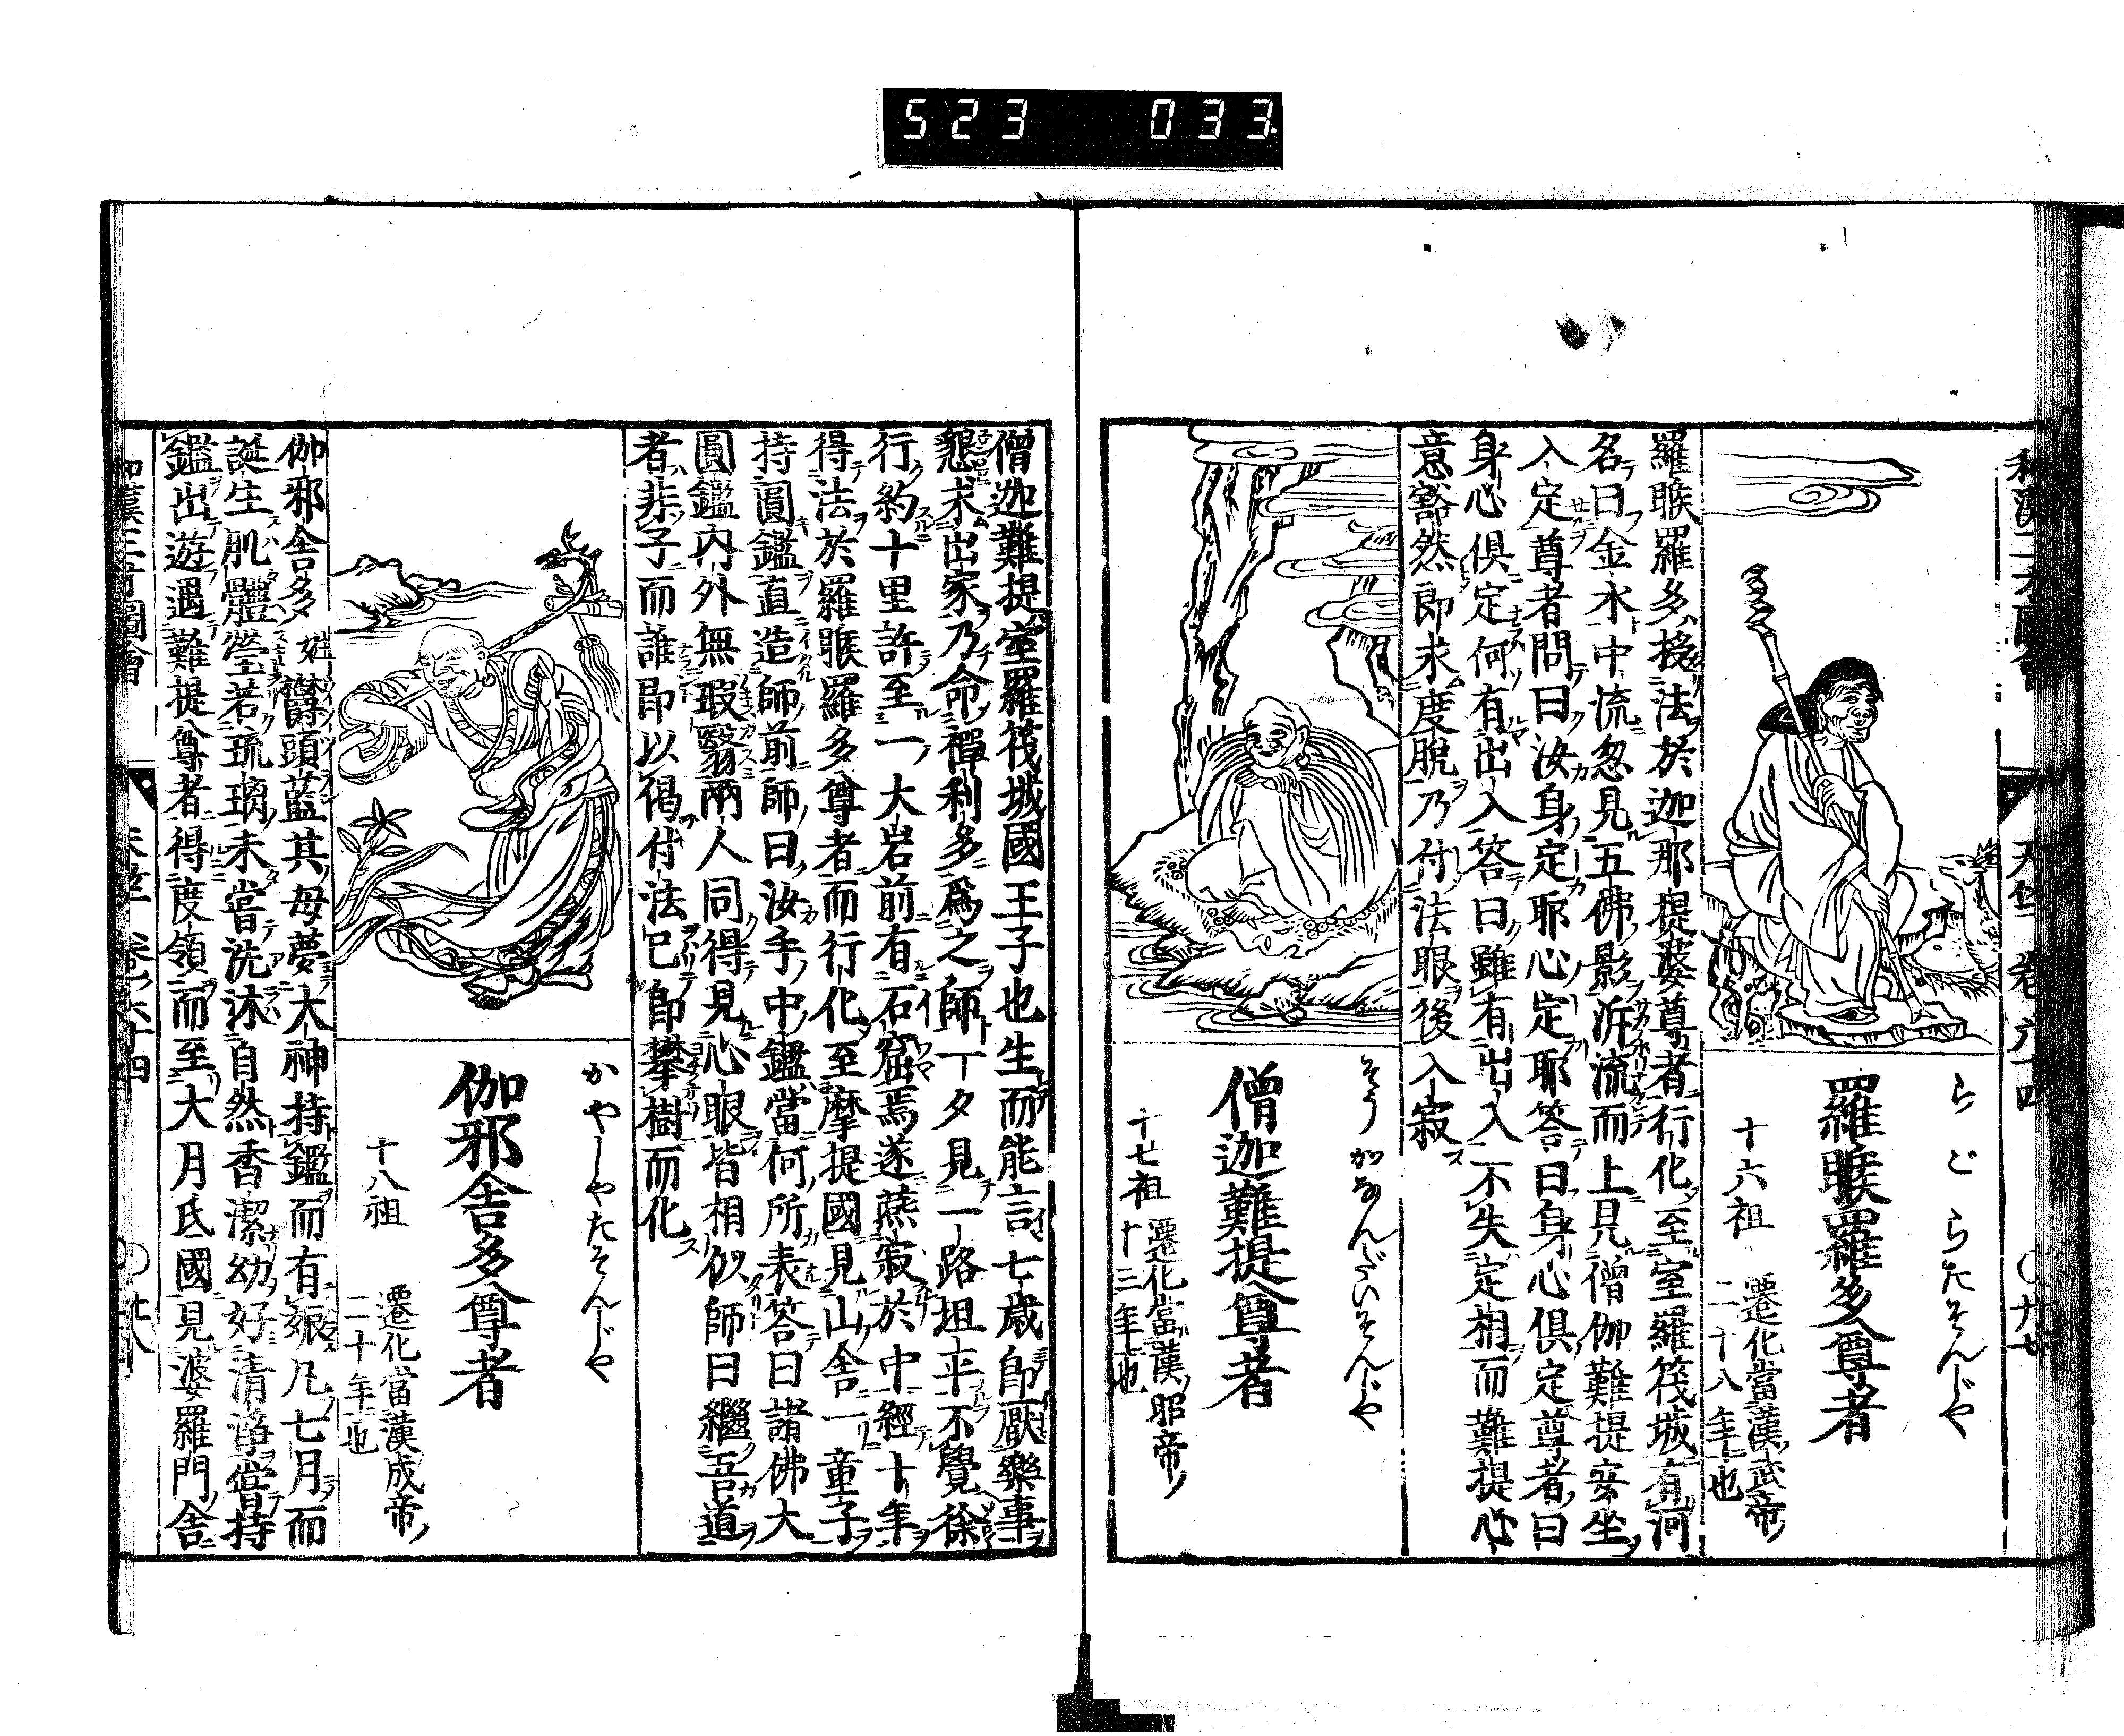 523 033
和漢三才圖會
天竺 卷六十四
らごらたそんじや
羅睺羅多尊者
十六祖
遷化當漢武帝
二十八年也
羅睺羅多授法於迦那提婆尊者行化至室羅筏城有河
名曰金水中流忽見五佛影泝流而上見僧伽難提安坐
入定尊者問曰汝身定耶心定耶答曰身心俱定尊者曰
身心俱定何有出入答曰雖有出入不失定相而難提心
意豁然即求度脫乃付法眼後入寂
そうかなんだいそんじや
僧迦難提尊者
十七祖
遷化當漢昭帝
十三年也
僧迦難提室羅筏城國王子也生而能言七歲即厭樂事
懇求出家乃命禪利多爲之師一夕見一路坦平不覺徐
行約十里許至一大岩前有石窟焉遂燕寂於中經十年
得法於羅睺羅多尊者而行化至摩提國見山舎一童子
持圓鑑直造師前師曰汝手中鑑當何所表答曰諸佛大
圓鑑內外無瑕翳兩人同得見心眼皆相似師曰繼吾道
者非子而誰即以偈付法已即攀樹而化
かやしやたそんじや
伽邪舎多尊者
十八祖
遷化當漢成帝
二十年也
伽邪舎多姓欝頭藍其母夢大神持鑑而有娠凡七月而
誕生肌體瑩若琉璃未嘗洗沐自然香潔幼好清淨嘗持
鑑出遊遇難提尊者得度領而至大月氏國見婆羅門舎